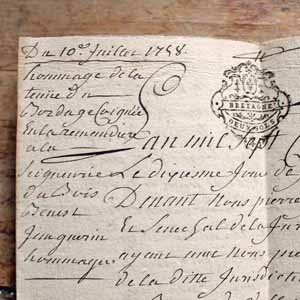 Du 10e Juillet 1758
hommage de la
tenue du
Bordage
En la
a la
Seigneurie
du Bois
Benest
Jauguerin
hommage
BRETAGNE
DEUX SOLS
L'an mil sept C
Le dixesme Jour de
Devant Nous pierre
Et Senechal de la Jur
ayant avec Nous pour
de la ditte Jurisdicti